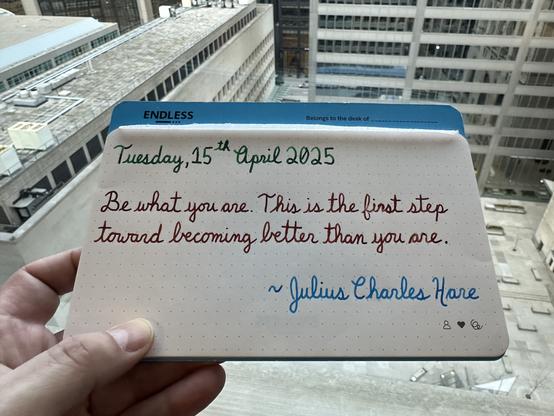 ENDLESS
Belongs to the desk of
Tuesday, 15th April 2025
Be what you are. This is the first step
toward becoming better than you are.
~ Julius Charles Hare